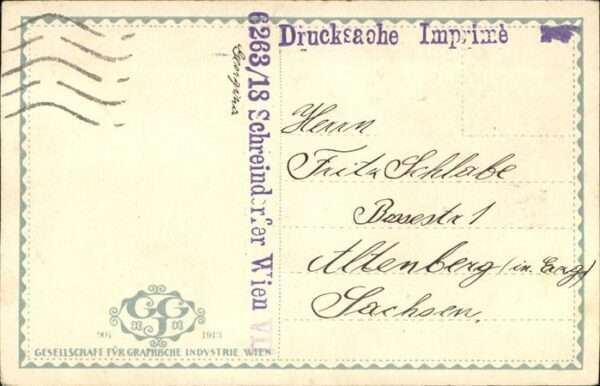 Drucksache Imprimé
6263/13 Schreindorfer Wien VII
Georgina
Herrn
Fritz Schlabe
Altenberg (in Erzg)
Sachsen.
GGJ
901 1913
GESELLSCHAFT FÜR GRAPHISCHE INDVSTRIE WIEN